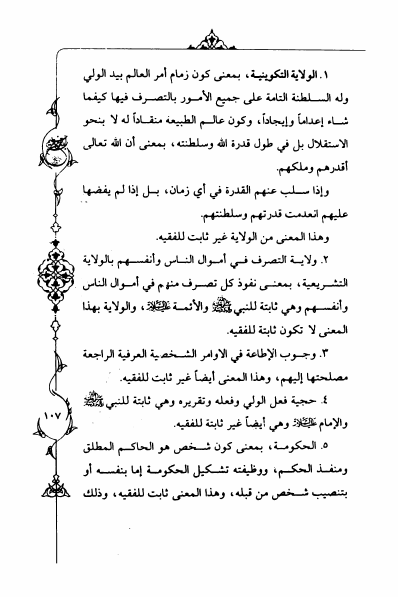 ١. الولاية التكوينية، بمعنى كون زمام أمر العالم بيد الولي
وله السلطنة التامة على جميع الأمور بالتصرف فيها كيفما
شاء إعداماً وإيجاداً، وكون عالم الطبيعه منقاداً له لا بنحو
الاستقلال بل في طول قدرة الله وسلطنته، بمعنى أن الله تعالى
أقدرهم وملكهم.
وإذا سلب عنهم القدرة في أي زمان، بل إذا لم يفضها
عليهم انعدمت قدرتهم وسلطنتهم.
وهذا المعنى من الولاية غير ثابت للفقيه.
٢. ولاية التصرف في أموال الناس وأنفسهم بالولاية
التشريعية، بمعنى نفوذ كل تصرف منهم في أموال الناس
وأنفسهم وهي ثابتة للنبي ﷺ والأئمة ، والولاية بهذا
المعنى لا تكون ثابتة للفقيه.
٣. وجوب الإطاعة في الاوامر الشخصية العرفية الراجعة
مصلحتها إليهم، وهذا المعنى أيضاً غير ثابت للفقيه.
٤. حجية فعل الولي وفعله وتقريره وهي ثابتة للنبي ﷺ
والإمام وهي أيضاً غير ثابتة للفقيه.
٥. الحكومة، بمعنى كون شخص هو الحاكم المطلق
ومنفذ الحكم، ووظيفته تشكيل الحكومة إما بنفسه أو
بتنصيب شخص من قبله، وهذا المعنى ثابت للفقيه، وذلك
١٠٧